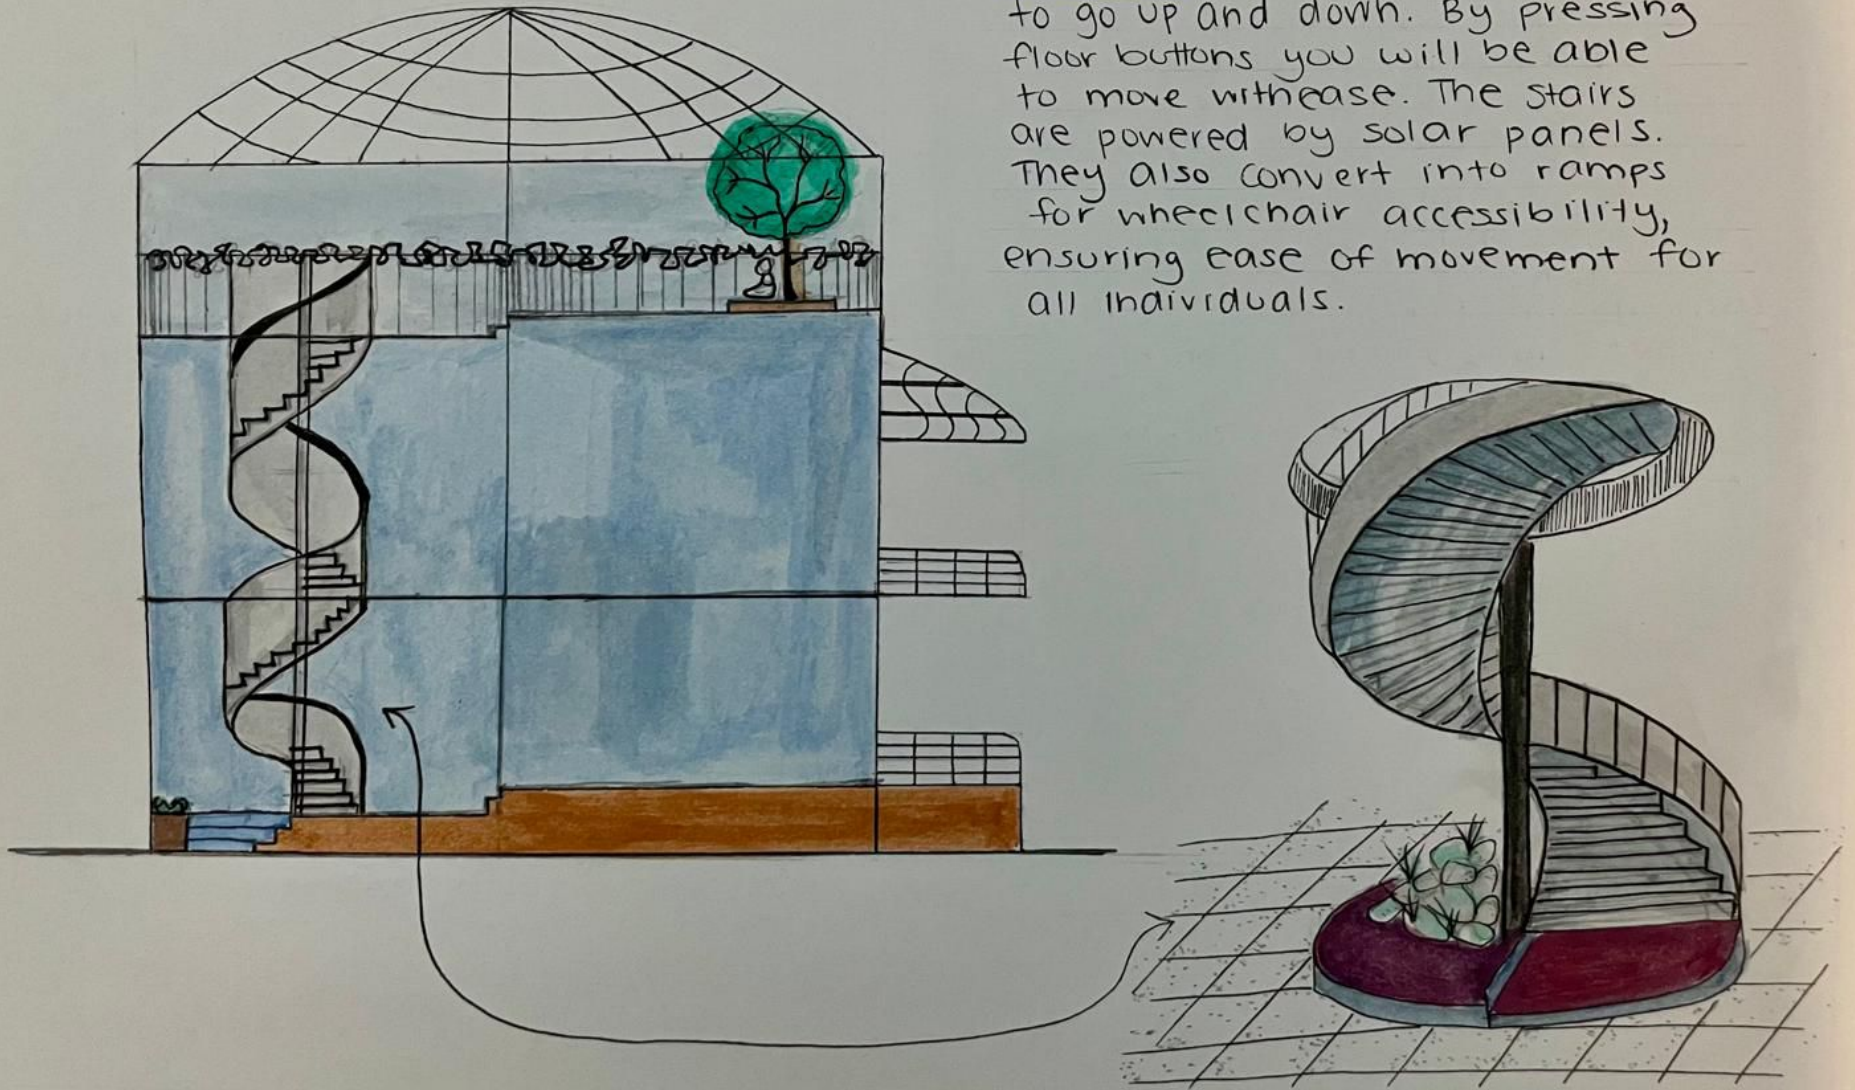 to go up and down. By pressing
floor buttons you will be able
to move withease. The stairs
are powered by solar panels.
They also convert into ramps
for wheelchair accessibility,
ensuring ease of movement for
all individuals.